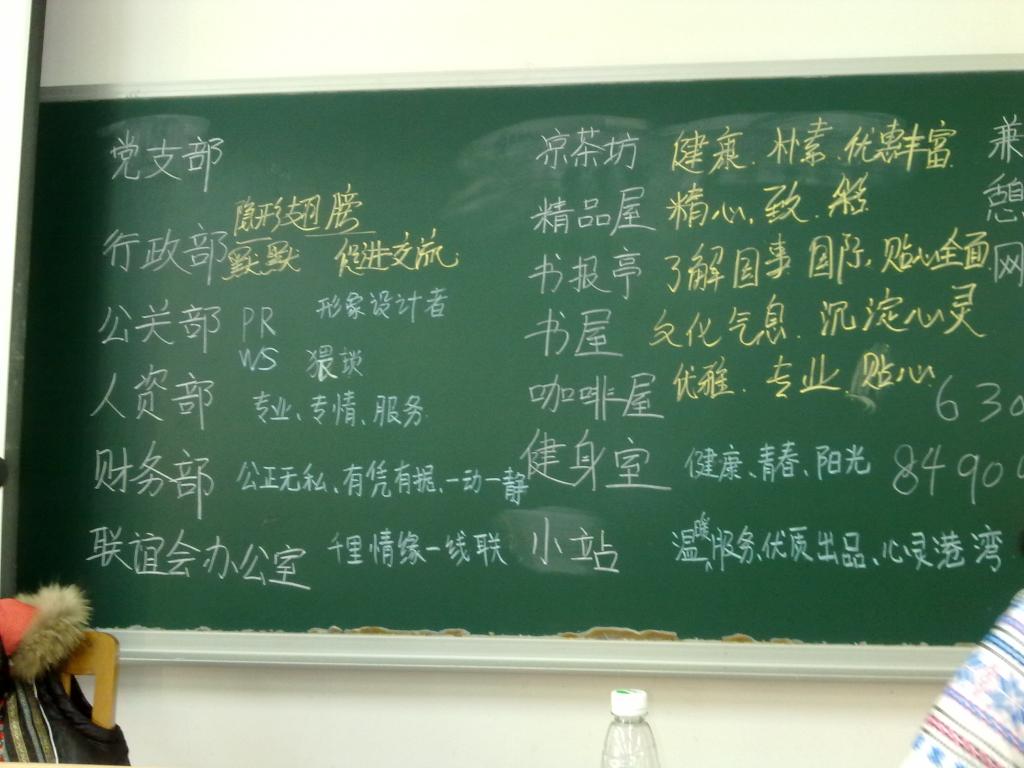 党支部
隐形翅膀
行政部 默默 促进交流
公关部 PR 形象设计者
VS 猥琐
人资部 专业、专情、服务
财务部 公正无私、有凭有据、一动一静
联谊会办公室 千里情缘一线联
凉茶坊 健康. 朴素. 优惠丰富
精品屋 精心. 致.
书报亭 了解国事 国际. 贴心全面
书屋 文化气息. 沉淀心灵
咖啡屋 优雅. 专业 贴心.
健身室 健康、青春、阳光
小站 温暖服务、优质出品、心灵港湾
兼
憩
网
630
8490